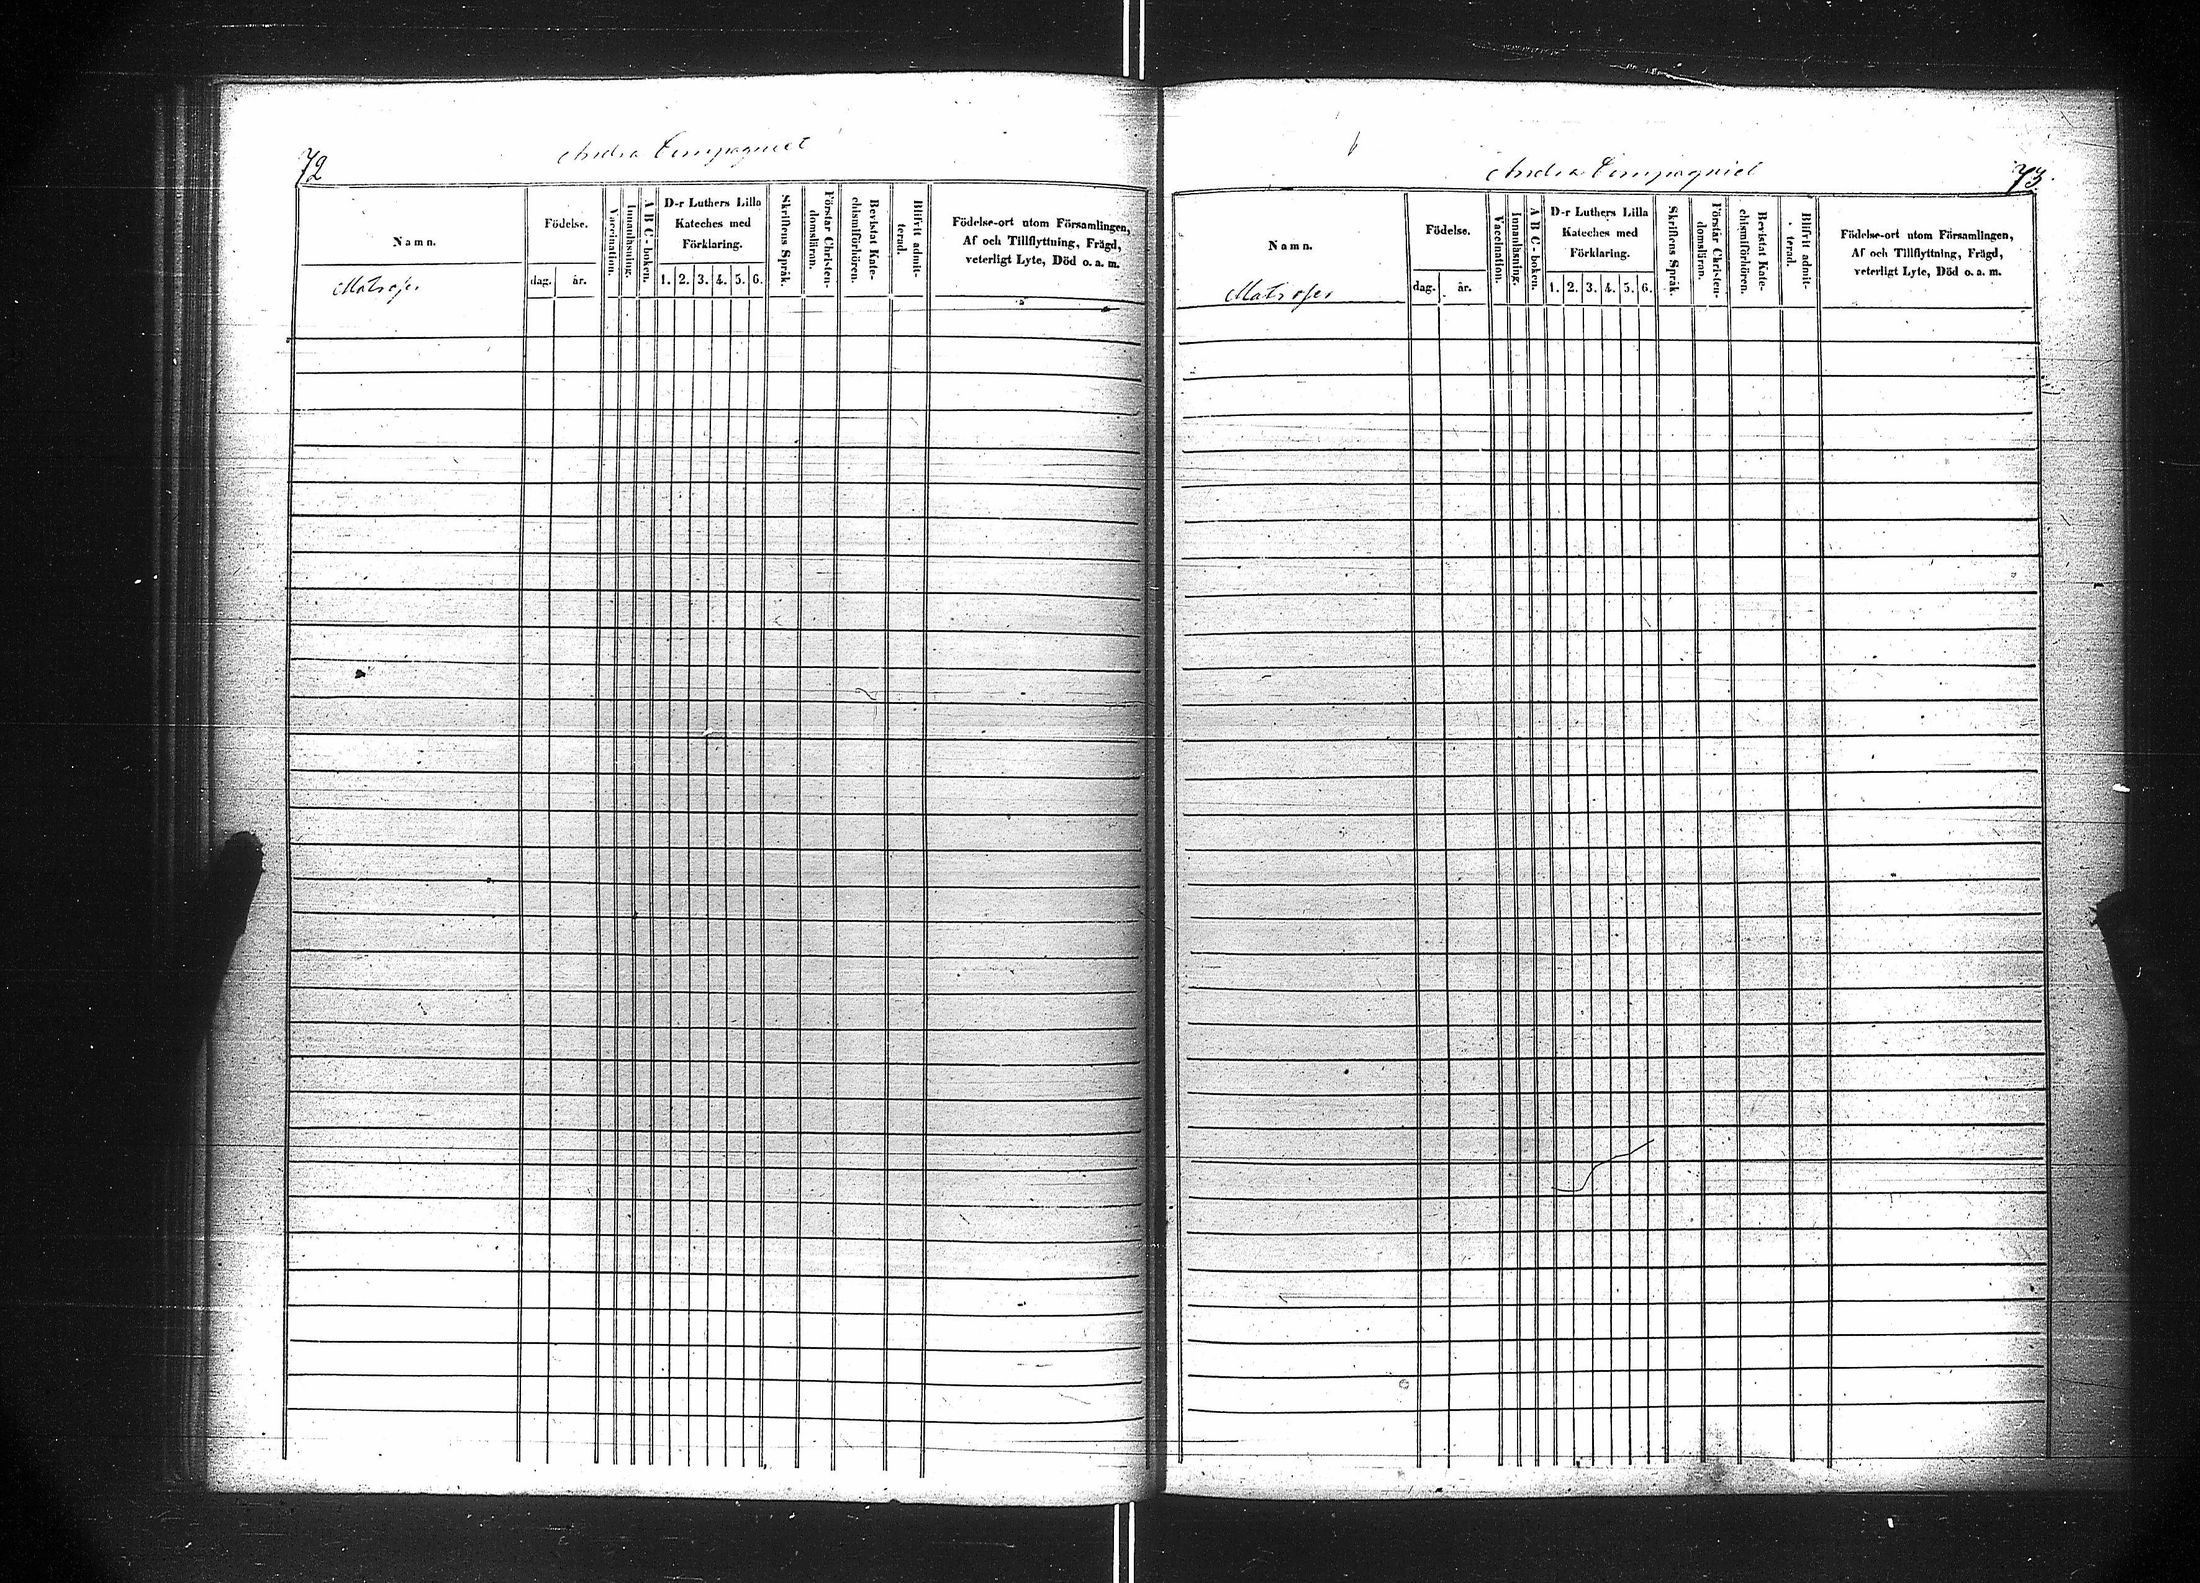 72
Andra Compagniet
Namn.
Matroser
Födelse.
dag. år.
Vaccination.
Innanläsning.
A B C-boken.
D-r Luthers Lilla
Kateches med
Förklaring.
1. 2. 3. 4. 5. 6.
Skriftens Språk.
Förstår Christen-
domsläran.
Bevistat Kate-
chismiförhören.
Blifvit admit-
terad.
Födelse-ort utom Församlingen,
Af och Tillflyttning, Frägd,
veterligt Lyte, Död o. a. m.
Andra Compagniet
73.
Namn.
Matroser
Födelse.
dag. år.
Vaccination.
Innanläsning.
A B C-boken.
D-r Luthers Lilla
Kateches med
Förklaring.
1. 2. 3. 4. 5. 6.
Skriftens Språk.
Förstår Christen-
domsläran.
Bevistat Kate-
chismiförhören.
Blifvit admit-
terad.
Födelse-ort utom Församlingen,
Af och Tillflyttning, Frägd,
veterligt Lyte, Död o. a. m.